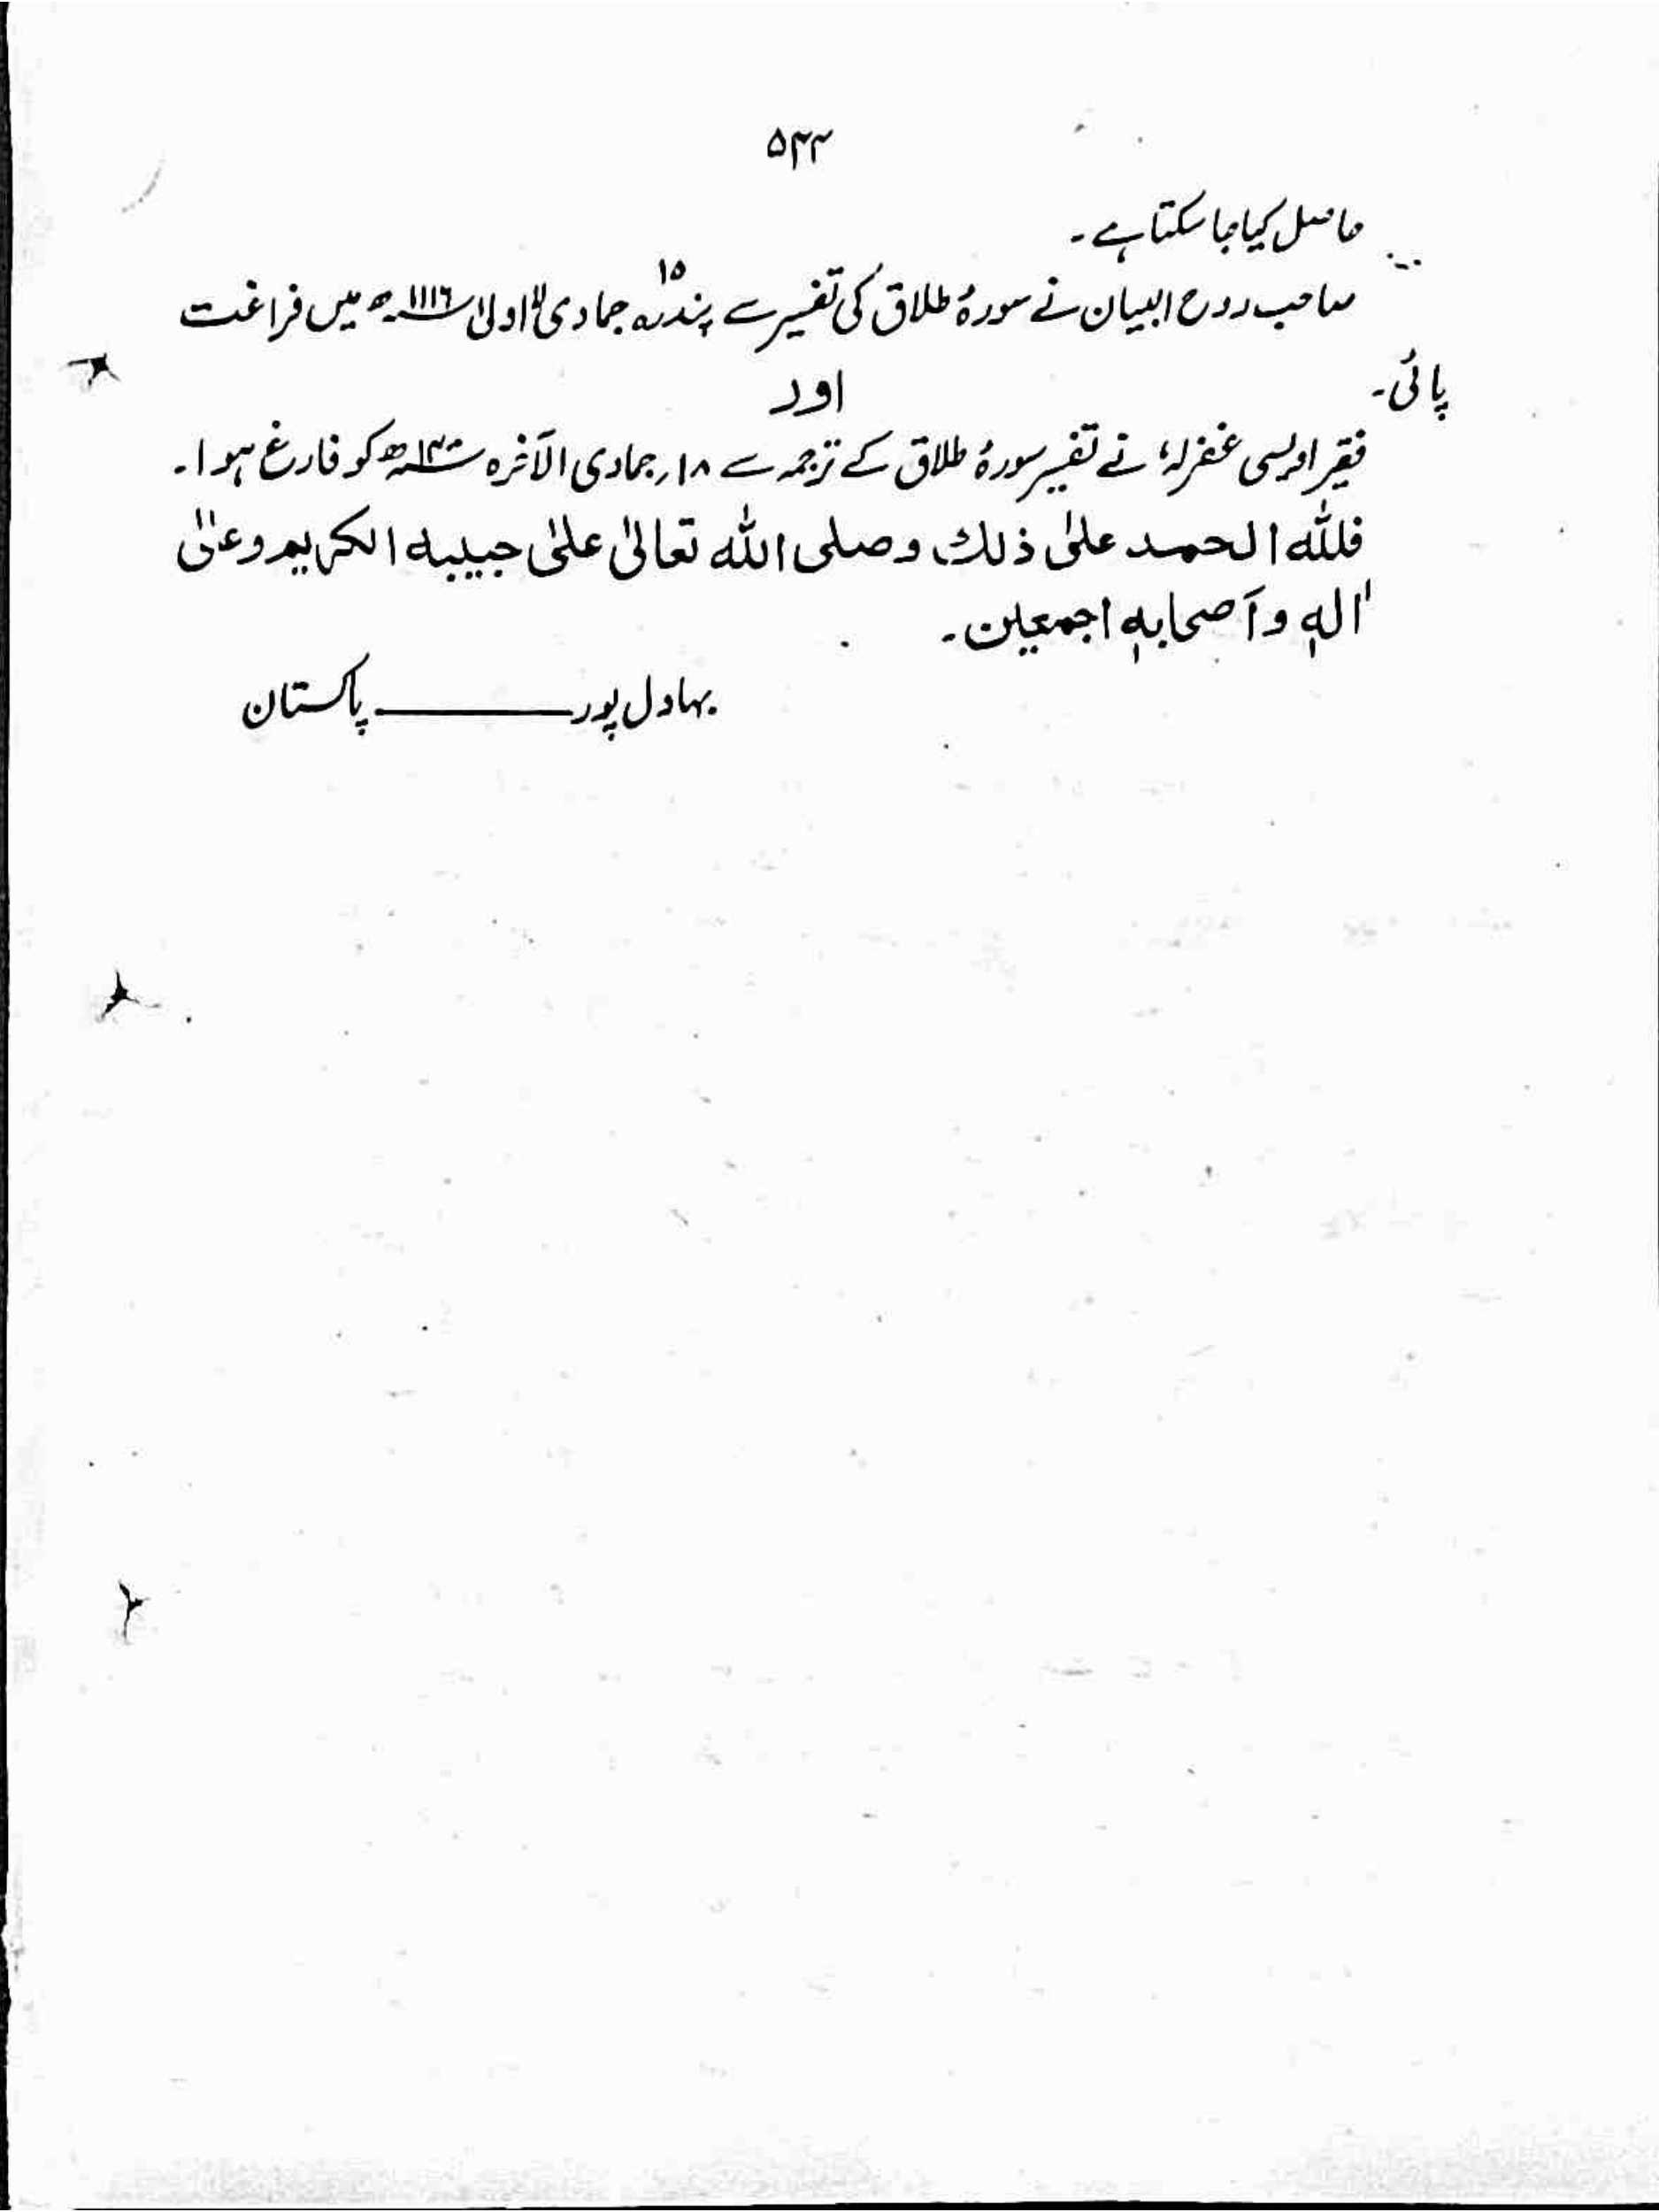 ۵۲۲
حاصل کیا جا سکتا ہے۔
صاحب روح البیان نے سورۂ طلاق کی تفسیر سے پندرہ ۱۵ جمادی الاولیٰ ۱۱۱۶ھ میں فراغت
پائی۔
اور
فقیر اویسی غفرلہٗ نے تفسیر سورۂ طلاق کے ترجمہ سے ۱۸؍ جمادی الآخرہ ھ کو فارغ ہوا۔
فللّٰہ الحمد علیٰ ذلك وصلی اللّٰہ تعالیٰ علیٰ حبیبہ الکریم وعلیٰ
اٰلہٖ وَاَصحابہٖ اجمعین۔
بہاول پور ــــــــ پاکستان